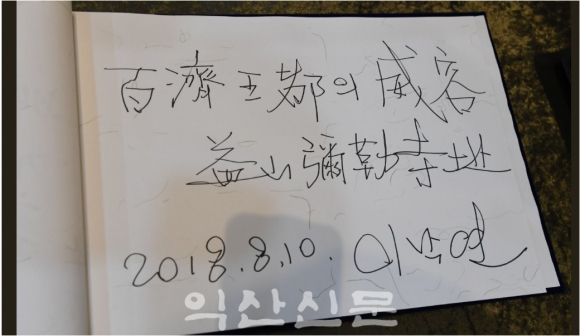 百濟王都의 威容
益山彌勒寺址
2018.8.10. 이낙연
익산신문